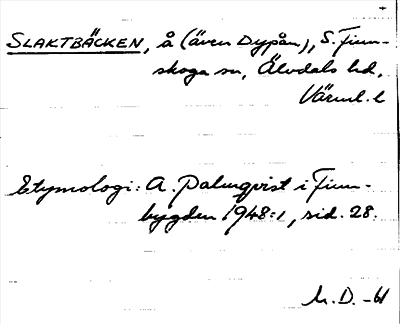 SLAKTBÄCKEN, å (även Dypån), S. Finn-
skoga sn, Älvdals hd,
Värml. l
Etymologi: A. Palmqvist i Finn-
bygden 1948:1, sid. 28.
M.D. -61